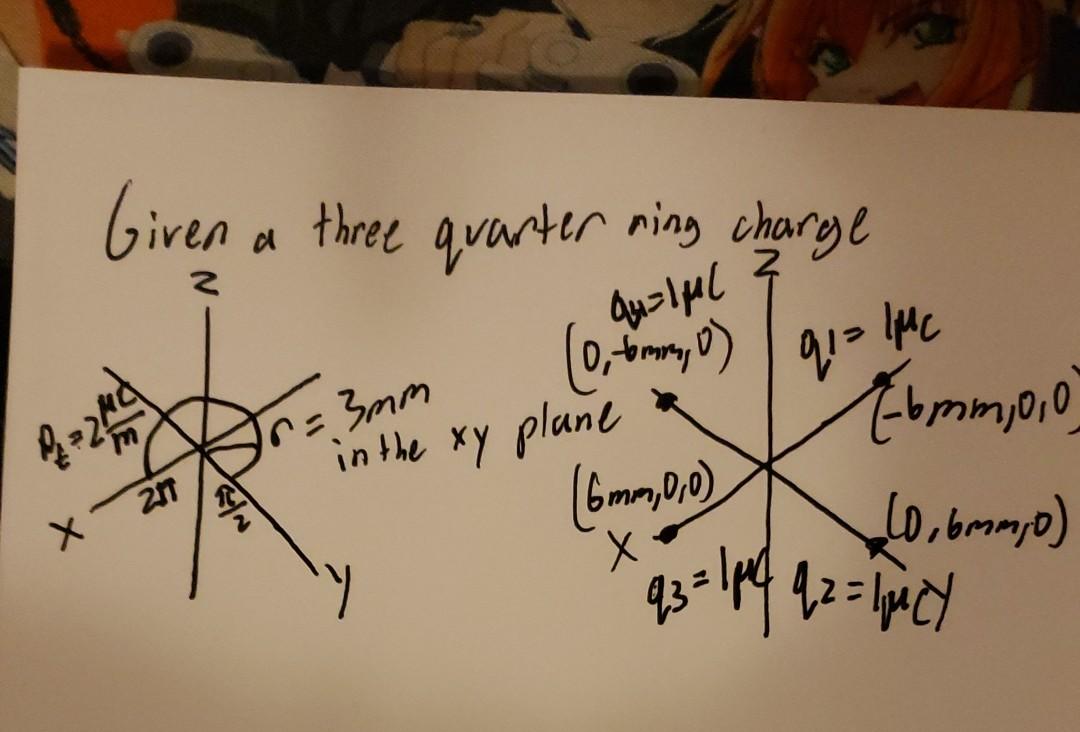 Given a three quarter ring charge
z
ρℓ = 2 μC/m
r = 3mm
in the xy plane
2π
π/2
x
y
z
q4=1μC
(0,-6mm,0)
q1= 1μC
(-6mm,0,0)
(6mm,0,0)
x
q3=1μC
(0,6mm,0)
q2=1μC
y